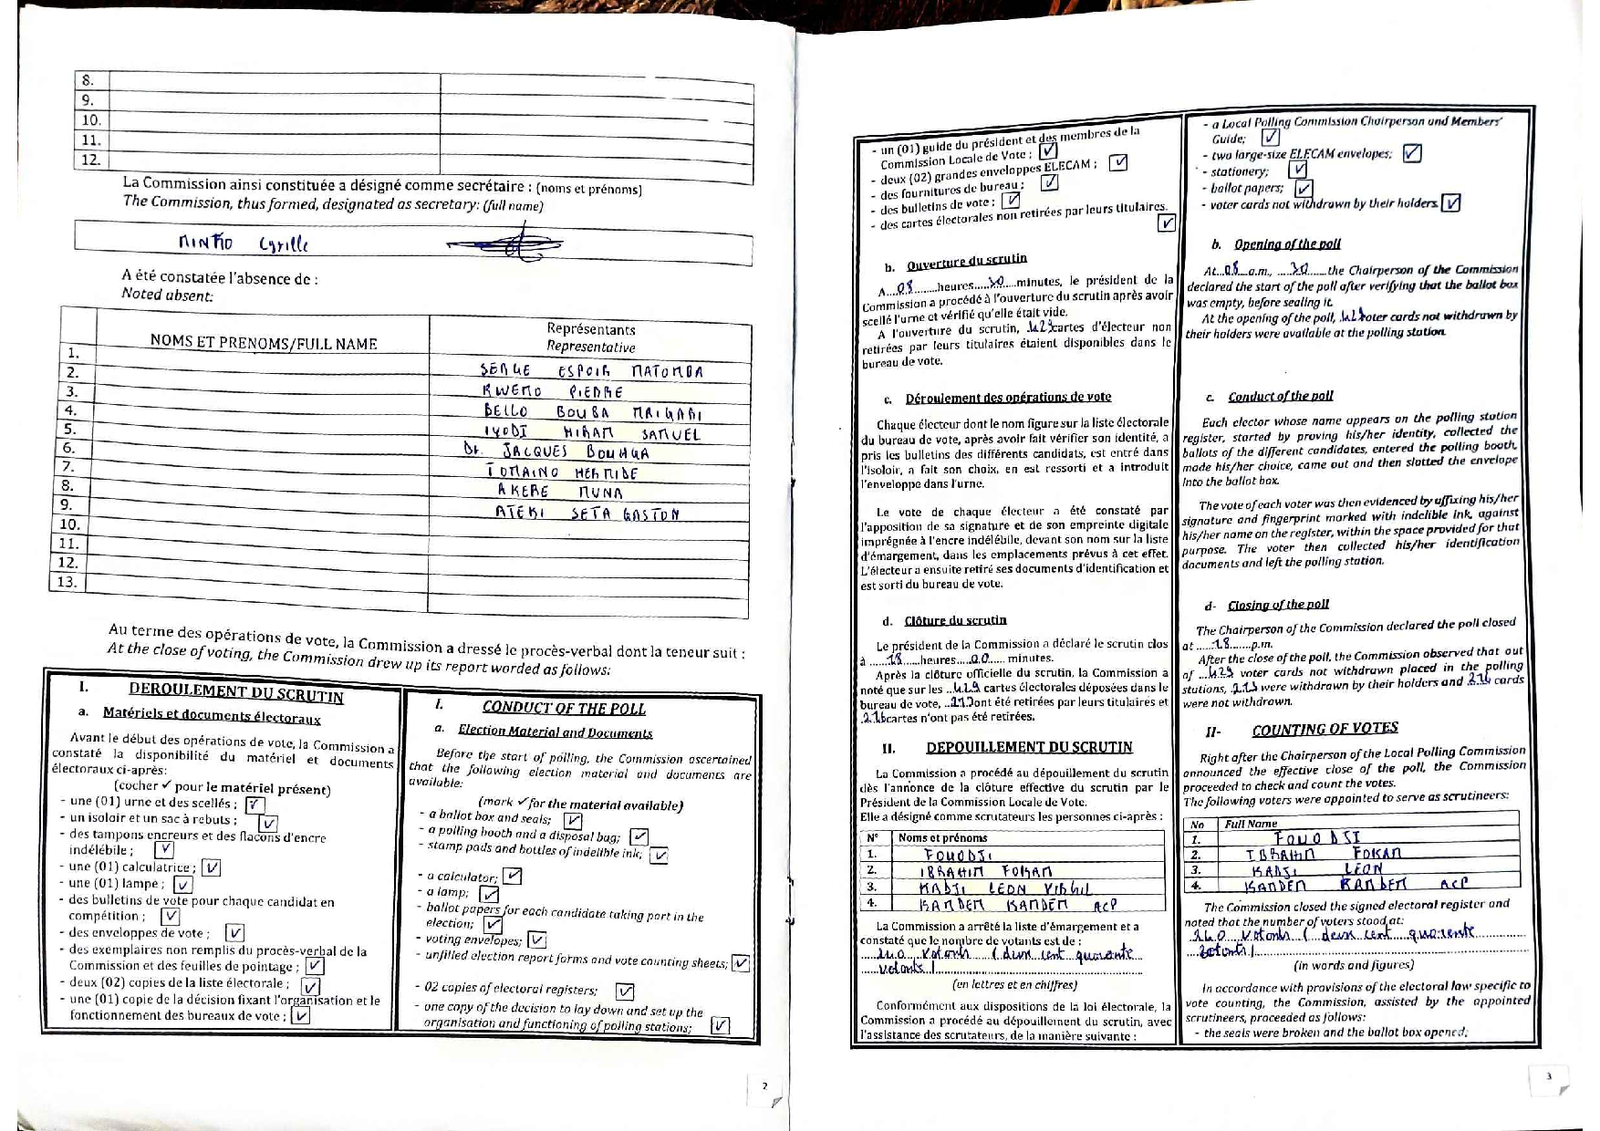 8.
9.
10.
11.
12.
La Commission ainsi constituée a désigné comme secrétaire : (noms et prénoms)
The Commission, thus formed, designated as secretary: (full name)
Cyrille
A été constatée l'absence de :
Noted absent:
NOMS ET PRENOMS/FULL NAME
Représentants
Representative
1.
2. SERGE ESPOIR MATOMBA
3. KWEMO PIERRE
4. BELLO BOUBA MAIGARI
5. IYODI HIRAM SAMUEL
6. Dr. JACQUES BOUHGA
7. TOMAINO HERMINE
8. AKERE MUNA
9. ATEKI SETA GASTON
10.
11.
12.
13.
Au terme des opérations de vote, la Commission a dressé le procès-verbal dont la teneur suit :
At the close of voting, the Commission drew up its report worded as follows:
I. DEROULEMENT DU SCRUTIN
a. Matériels et documents électoraux
Avant le début des opérations de vote, la Commission a
constaté la disponibilité du matériel et documents
électoraux ci-après:
(cocher ✓ pour le matériel présent)
- une (01) urne et des scellés ; ✓
- un isoloir et un sac à rebuts ; ✓
- des tampons encreurs et des flacons d'encre
indélébile ; ✓
- une (01) calculatrice ; ✓
- une (01) lampe ; ✓
- des bulletins de vote pour chaque candidat en
compétition ; ✓
- des enveloppes de vote ; ✓
- des exemplaires non remplis du procès-verbal de la
Commission et des feuilles de pointage ; ✓
- deux (02) copies de la liste électorale ; ✓
- une (01) copie de la décision fixant l'organisation et le
fonctionnement des bureaux de vote ; ✓
I. CONDUCT OF THE POLL
a. Election Material and Documents
Before the start of polling, the Commission ascertained
that the following election material and documents are
available:
(mark ✓ for the material available)
- a ballot box and seals; ✓
- a polling booth and a disposal bag; ✓
- stamp pads and bottles of indelible ink; ✓
- a calculator; ✓
- a lamp; ✓
- ballot papers for each candidate taking part in the
election; ✓
- voting envelopes; ✓
- unfilled election report forms and vote counting sheets; ✓
- 02 copies of electoral registers; ✓
- one copy of the decision to lay down and set up the
organisation and functioning of polling stations; ✓
2
- un (01) guide du président et des membres de la
Commission Locale de Vote ; ✓
- deux (02) grandes enveloppes ELECAM ; ✓
- des fournitures de bureau ; ✓
- des bulletins de vote ; ✓
- des cartes électorales non retirées par leurs titulaires.
✓
b. Ouverture du scrutin
A 08 heures 30 minutes, le président de la
Commission a procédé à l'ouverture du scrutin après avoir
scellé l'urne et vérifié qu'elle était vide.
A l'ouverture du scrutin, 429 cartes d'électeur non
retirées par leurs titulaires étaient disponibles dans le
bureau de vote.
c. Déroulement des opérations de vote
Chaque électeur dont le nom figure sur la liste électorale
du bureau de vote, après avoir fait vérifier son identité, a
pris les bulletins des différents candidats, est entré dans
l'isoloir, a fait son choix, en est ressorti et a introduit
l'enveloppe dans l'urne.
Le vote de chaque électeur a été constaté par
l'apposition de sa signature et de son empreinte digitale
imprégnée à l'encre indélébile, devant son nom sur la liste
d'émargement, dans les emplacements prévus à cet effet.
L'électeur a ensuite retiré ses documents d'identification et
est sorti du bureau de vote.
d. Clôture du scrutin
Le président de la Commission a déclaré le scrutin clos
à 18 heures 00 minutes.
Après la clôture officielle du scrutin, la Commission a
noté que sur les 429 cartes électorales déposées dans le
bureau de vote, 213 ont été retirées par leurs titulaires et
216 cartes n'ont pas été retirées.
II. DEPOUILLEMENT DU SCRUTIN
La Commission a procédé au dépouillement du scrutin
dès l'annonce de la clôture effective du scrutin par le
Président de la Commission Locale de Vote.
Elle a désigné comme scrutateurs les personnes ci-après :
N° Noms et prénoms
1. FOUODSI
2. IBRAHIM FOKAM
3. KADJI LEON VIRGIL
4. KAMDEM KAMDEM ACP
La Commission a arrêté la liste d'émargement et a
constaté que le nombre de votants est de :
240 votants (deux cent quarante
votants)
(en lettres et en chiffres)
Conformément aux dispositions de la loi électorale, la
Commission a procédé au dépouillement du scrutin, avec
l'assistance des scrutateurs, de la manière suivante :
- a Local Polling Commission Chairperson and Members'
Guide; ✓
- two large-size ELECAM envelopes; ✓
- stationery; ✓
- ballot papers; ✓
- voter cards not withdrawn by their holders. ✓
b. Opening of the poll
At 08 a.m., 30 the Chairperson of the Commission
declared the start of the poll after verifying that the ballot box
was empty, before sealing it.
At the opening of the poll, 429 voter cards not withdrawn by
their holders were available at the polling station.
c. Conduct of the poll
Each elector whose name appears on the polling station
register, started by proving his/her identity, collected the
ballots of the different candidates, entered the polling booth,
made his/her choice, came out and then slotted the envelope
into the ballot box.
The vote of each voter was then evidenced by affixing his/her
signature and fingerprint marked with indelible ink, against
his/her name on the register, within the space provided for that
purpose. The voter then collected his/her identification
documents and left the polling station.
d- Closing of the poll
The Chairperson of the Commission declared the poll closed
at 18 p.m.
After the close of the poll, the Commission observed that out
of 429 voter cards not withdrawn placed in the polling
stations, 213 were withdrawn by their holders and 216 cards
were not withdrawn.
II- COUNTING OF VOTES
Right after the Chairperson of the Local Polling Commission
announced the effective close of the poll, the Commission
proceeded to check and count the votes.
The following voters were appointed to serve as scrutineers:
No Full Name
1. FOUODSI
2. IBRAHIM FOKAM
3. KADJI LEON
4. KAMDEM KAMDEM ACP
The Commission closed the signed electoral register and
noted that the number of voters stood at:
240 votants (deux cent quarante
votants)
(in words and figures)
In accordance with provisions of the electoral law specific to
vote counting, the Commission, assisted by the appointed
scrutineers, proceeded as follows:
- the seals were broken and the ballot box opened;
3